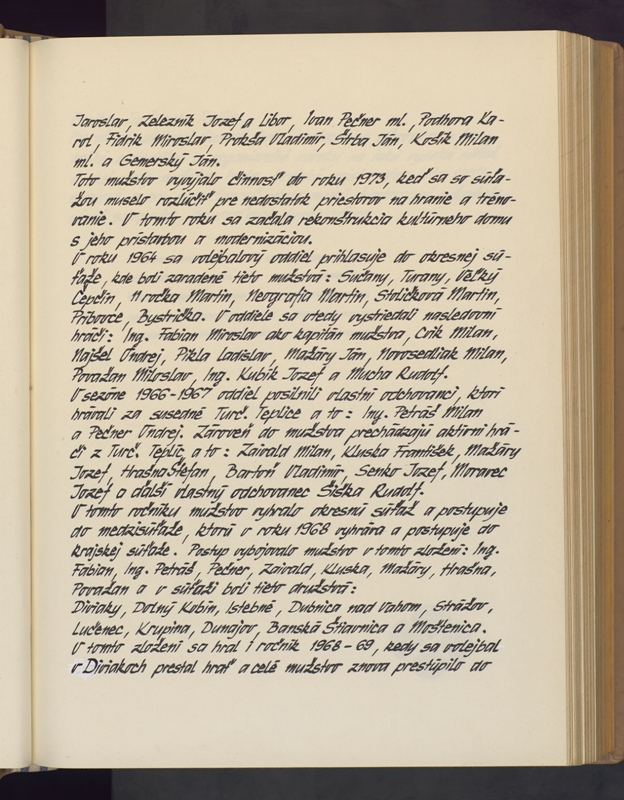 Jaroslav, Železnik Jozef a Libor, Ivan Pečner ml., Podhora Ka-
rol, Fidrik Miroslav, Prokša Vladimír, Štrba Ján, Košik Milan
ml. a Gemerský Ján.
Toto mužstvo vyvýjalo činnosť do roku 1973, keď sa so súťa-
žou muselo rozlúčiť pre nedostatok priestorov na hranie a tréno-
vanie. V tomto roku sa začala rekonštrukcia kultúrneho domu
s jeho prístavbou a modernizáciou.
V roku 1964 sa volejbalový oddiel prihlasuje do okresnej sú-
ťaže, kde boli zaradené tieto mužstvá: Sučany, Turany, Veľký
Čepčín, 11 ročka Martin, Neografia Martin, Stoličková Martin,
Príbovce, Bystrička. V oddiele sa vtedy vystriedali nasledovní
hráči: Ing. Fabian Miroslav ako kapitán mužstva, Cvik Milan,
Najšel Ondrej, Pikla Ladislav, Mažáry Ján, Novosedliak Milan,
Považan Miloslav, Ing. Kubík Jozef a Mucha Rudolf.
V sezóne 1966-1967 oddiel posilnili vlastní odchovanci, ktorí
hrávali za susedné Turč. Teplice a to: Ing. Petráš Milan
a Pečner Ondrej. Zároveň do mužstva prechádzajú aktívni hrá-
či z Turč. Teplíc a to: Zaivald Milan, Kluska František, Mažáry
Jozef, Hrašna Štefan, Bartoň Vladimír, Senko Jozef, Moravec
Jozef a ďalší vlastný odchovanec Šiška Rudolf.
V tomto ročníku mužstvo vyhralo okresnú súťaž a postupuje
do medzisúťaže, ktorú v roku 1968 vyhráva a postupuje do
krajskej súťaže. Postup vybojovalo mužstvo v tomto zložení: Ing.
Fabian, Ing. Petráš, Pečner, Zaivald, Kluska, Mažáry, Hrašna,
Považan a v súťaži boli tieto družstvá:
Diviaky, Dolný Kubín, Istebné, Dubnica nad Vahom, Strážov,
Lučenec, Krupina, Dunajov, Banská Štiavnica a Moštenica.
V tomto zložení sa hral i ročník 1968-69, kedy sa volejbal
v Diviakoch prestal hrať a celé mužstvo znova prestúpilo do